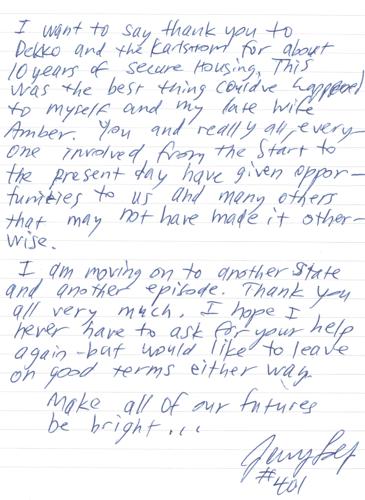 I want to say thank you to
Dekko and the Karlstrom for about
10 years of secure Housing. This
was the best thing could've happened
to myself and my late wife
Amber. You and really all, every-
one involved from the start to
the present day have given oppor-
tunities to us and many others
that may not have made it other-
wise.
I am moving on to another State
and another episode. Thank you
all very much. I hope I
never have to ask for your help
again - but would like to leave
on good terms either way.
Make all of our futures
be bright...
#401